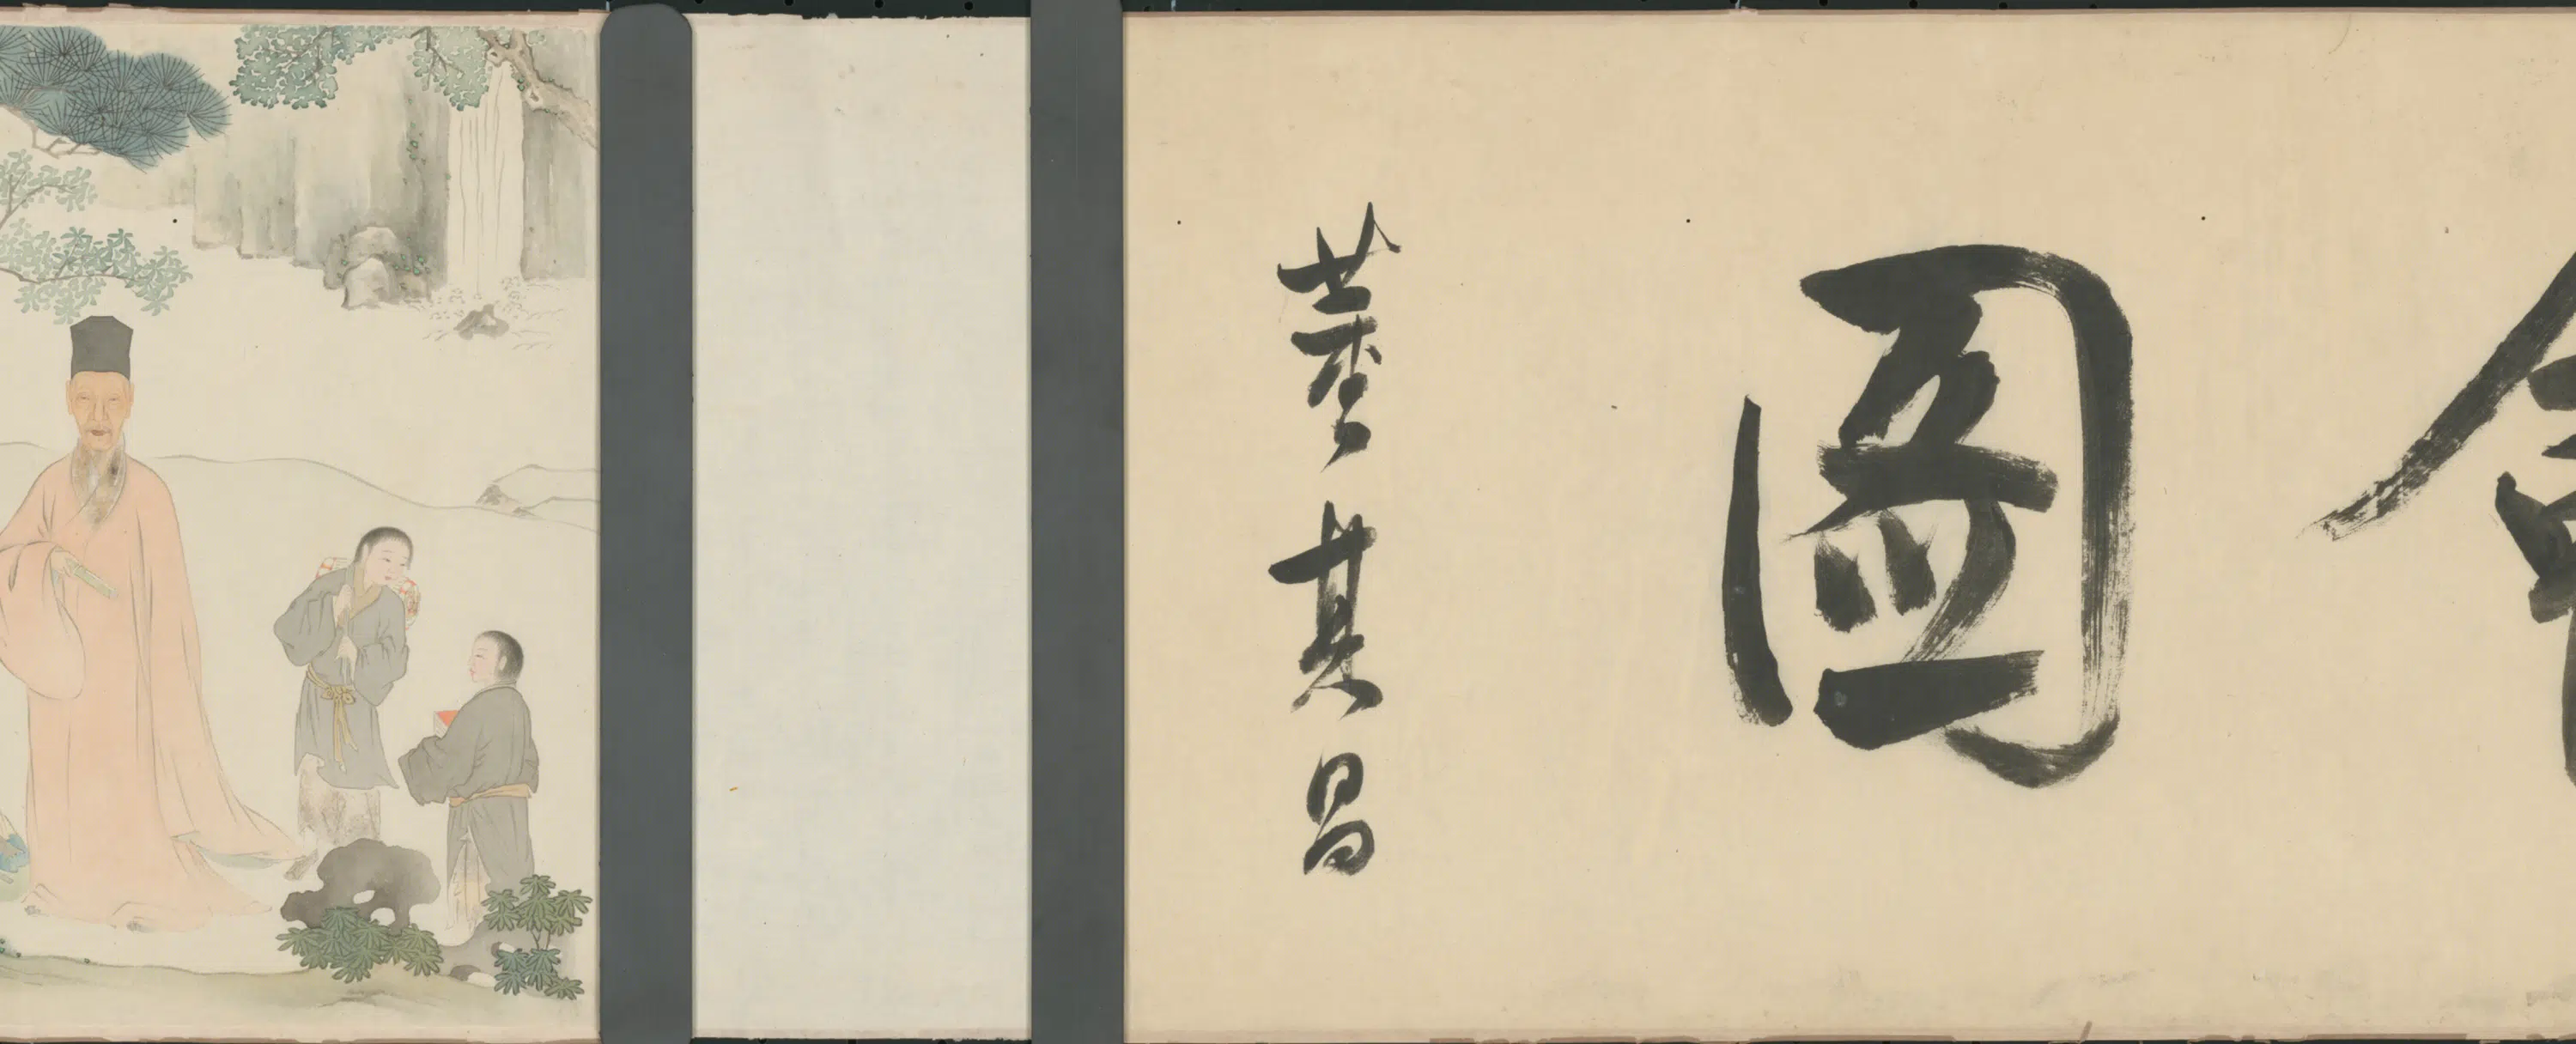 圖
董其昌